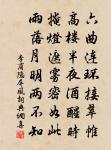 六曲連環接翠帷
高樓半夜酒醒時
掩燈遮霧密如此
雨落月明兩不知
李商隱屏風詩詞網壽